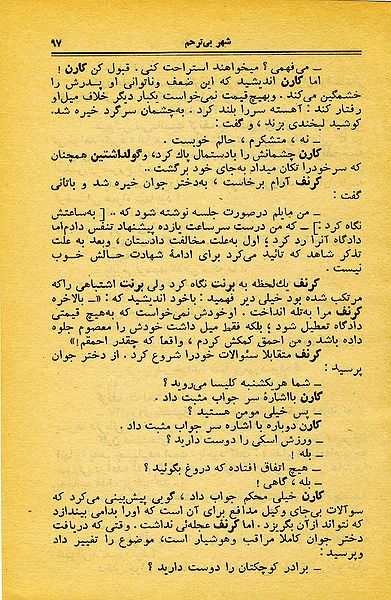 شهر بی‌ترحم
۹۷
ــ می‌فهمی؟ میخواهند استراحت کنی. قبول کن کارن!
اما کارن اندیشید که این ضعف وناتوانی او پدرش را
خشمگین می‌کند. وبهیچ‌قیمت نمی‌خواست یکبار دیگر خلاف میل‌او
رفتار کند: آهسته سررا بلند کرد. به‌چشمان سرگرد خیره شد.
کوشید لبخندی بزند، و گفت:
ــ نه، متشکرم، حالم خوبست.
کارن چشمانش را بادستمال پاك کرد، وگولداشتین همچنان
که سرخودرا تکان میداد به‌جای خود برگشت..
کرنف آرام برخاست، به‌دختر جوان خیره شد و باتانی
گفت:
ــ من مایلم درصورت جلسه نوشته شود که .. [ به‌ساعتش
نگاه کرد:] ــ که من درست سرساعت یازده پیشنهاد تنفس دادم‌اما
دادگاه آنرا رد کرد؛ اول به‌علت مخالفت دادستان، وبعد به علت
تذکر شاهد که تائید می‌کرد برای ادامهٔ شهادت حالش خوب
نیست.
کرنف یك‌لحظه به برنت نگاه کرد ولی برنت اشتباهی راکه
مرتکب شده بود خیلی دیر فهمید: باخود اندیشید که: «ــ بالاخره
کرنف مرا به‌تله انداخت. اوخودش نمی‌خواست که به‌هیچ قیمتی
دادگاه تعطیل شود؛ بلکه فقط میل داشت خودش را معصوم جلوه
داده باشد و من احمق کمکش کردم، واقعا که چقدر احمقم!»
کرنف متقابلا سئوالات خودرا شروع کرد. از دختر جوان
پرسید:
ــ شما هریکشنبه کلیسا می‌روید؟
کارن بااشارهٔ سر جواب مثبت داد.
ــ پس خیلی مومن هستید؟
کارن دوباره با اشاره سر جواب مثبت داد.
ــ ورزش اسکی را دوست دارید؟
ــ بله!
ــ هیچ اتفاق افتاده که دروغ بگوئید؟
ــ بله، گاهی!
کارن خیلی محکم جواب داد، گویی پیش‌بینی می‌کرد که
سوآلات بی‌جای وکیل مدافع برای آن است که اورا بدامی بیندازد
که نتواند ازآن بگریزد. اما کرنف عجله‌ئی نداشت. وقتی که دریافت
دختر جوان کاملا مراقب وهوشیار است، موضوع را تغییر داد
وپرسید:
ــ برادر کوچکتان را دوست دارید؟